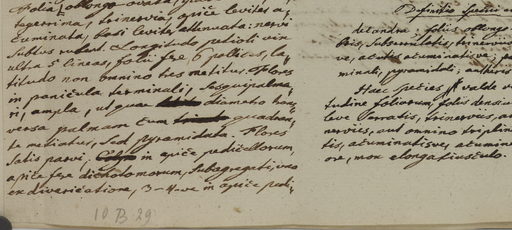 folia, oblongo-ovata,
integerrima, trinervia, apice leviter a-
cuminata, basi leviter attenuata: nervi
subtus rubent. Longitudo petioli vix
ultra 5 lineas, folii fere 6 pollices, la-
titudo non omnino tres metitur. Flores
in panicula terminali, sesquipalma-
ri, ampla, ut quae diametro trans-
versa palmam cum quadran-
te metiatur, sed pyramidata. Flores
satis parvi, in apice pedicellorum,
apice fere dichotomorum, subaggregati, imo
ex divaricatione, 3-4-ve in apice pedi-
10 B 29
Definitio speciei
decandra; foliis oblongo
tis, subserrulatis, trinerviis
ve, acute acuminatis; p
minali, pyramidata; antheris
Haec species valde v
tudine foliorum, foliis densiu
leve serratis, trinerviis, a
nerviis, aut omnino triplin
tis, acuminatisve, acumine
ore, non elongatiusculo.